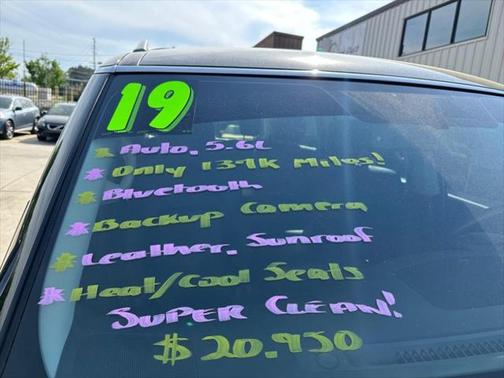 19
* Auto, 5.6L
* Only 139K Miles!
* Bluetooth
* Backup Camera
* Leather, Sunroof
* Heat/Cool Seats
Super Clean!
$20,950